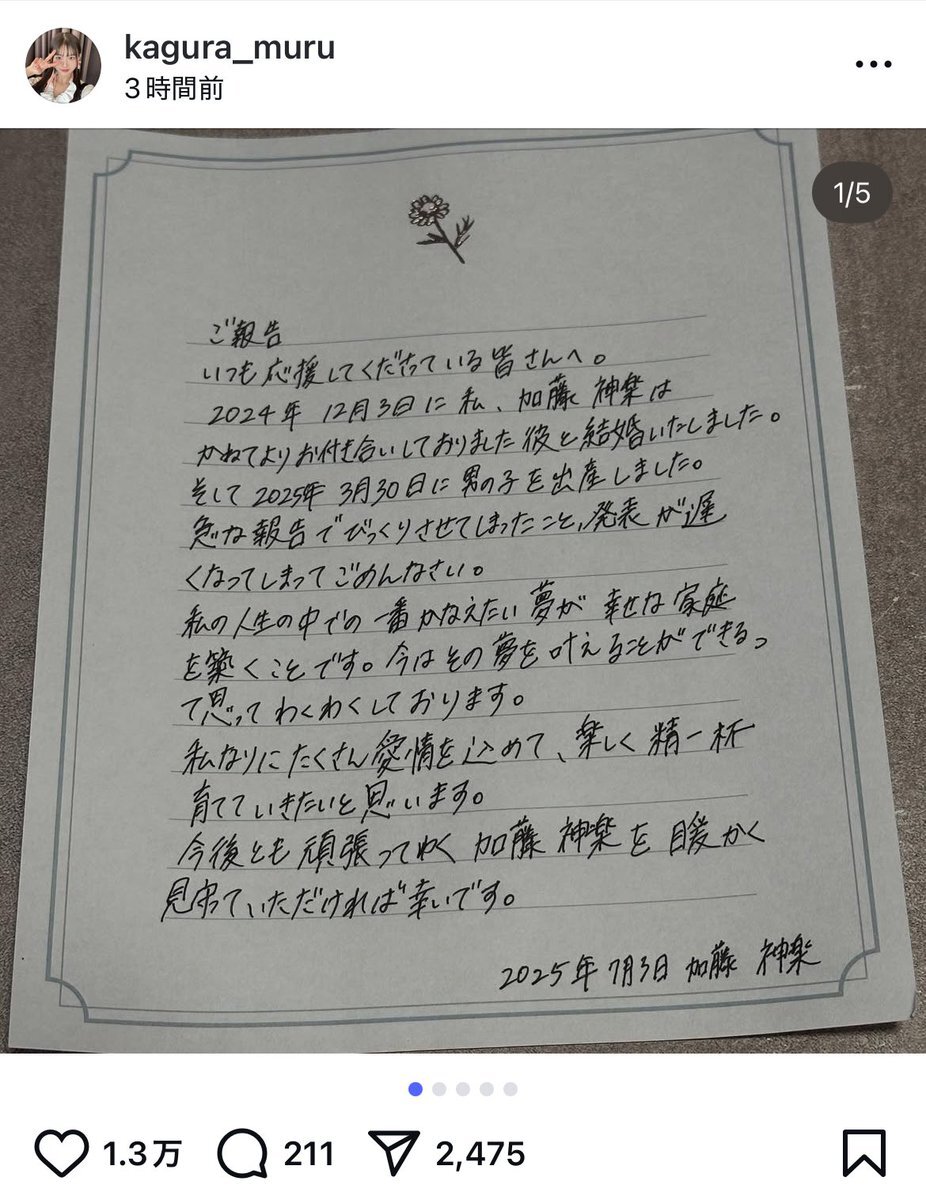 kagura_muru
3時間前
1/5
ご報告
いつも応援してくださっている皆さんへ。
2024年 12月3日に私、加藤 神楽は
かねてよりお付き合いしておりました彼と結婚いたしました。
そして 2025年 3月30日に男の子を出産しました。
急な報告でびっくりさせてしまったこと、発表が遅
くなってしまってごめんなさい。
私の人生の中での一番かなえたい夢が 幸せな家庭
を築くことです。今はその夢を叶えることができるっ
て思ってわくわくしております。
私なりにたくさん愛情を込めて、楽しく精一杯
育てていきたいと思います。
今後とも頑張ってゆく 加藤 神楽を 暖かく
見守っていただければ幸いです。
2025年 7月3日 加藤 神楽
1.3万 211 2,475